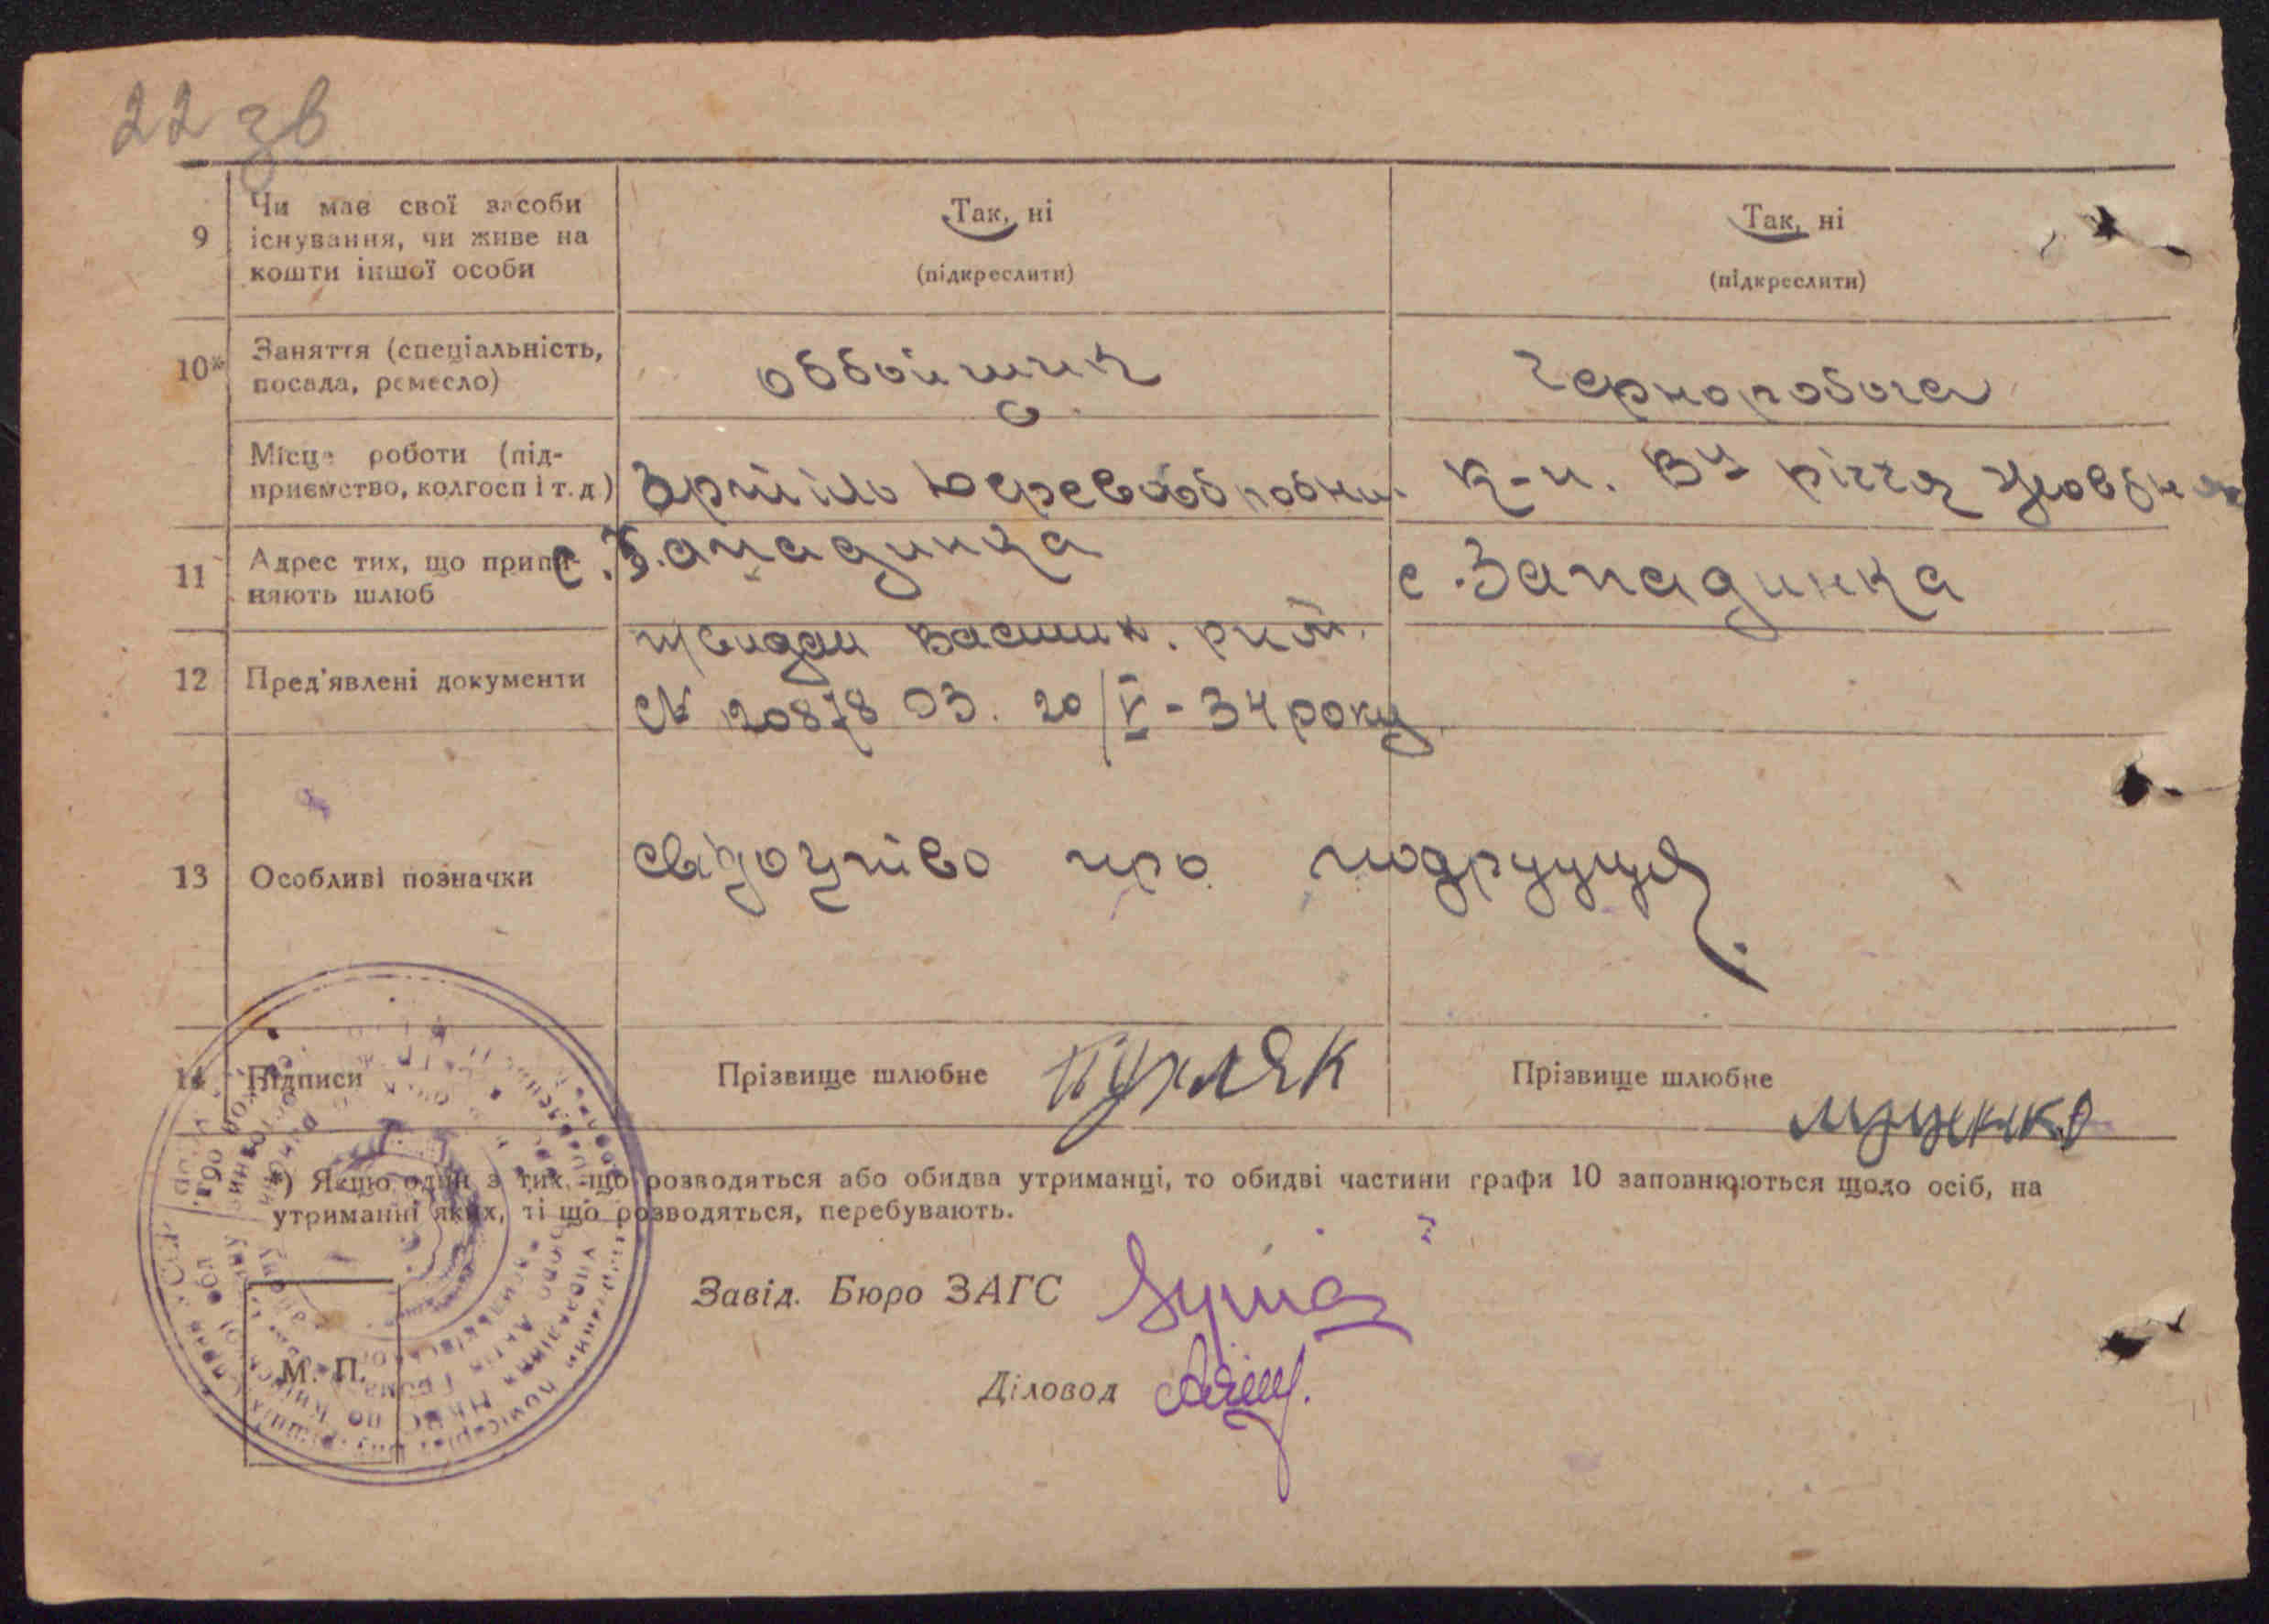 22 зв
9 Чи має свої засоби існування, чи живе на кошти іншої особи
Так, ні
(підкреслити)
Так, ні
(підкреслити)
10* Заняття (спеціальність, посада, ремесло)
оббойщик
Чернороboча
Місце роботи (підприємство, колгосп і т. д.)
К-п. річчя Жовтня
11 Адрес тих, що припиняють шлюб
с. Западинка
с. Западинка
12 Пред'явлені документи
видан Васильк.
№ 20878 03. 20/V - 34 року
13 Особливі позначки
свідоцтво про подружжя.
14 Підписи
Прізвище шлюбне
Пухляк
Прізвище шлюбне
*) Якщо один з тих, що розводяться або обидва утриманці, то обидві частини графи 10 заповнюються щодо осіб, на
утриманні яких, ті що розводяться, перебувають.
Завід. Бюро ЗАГС
Діловод
М. П.